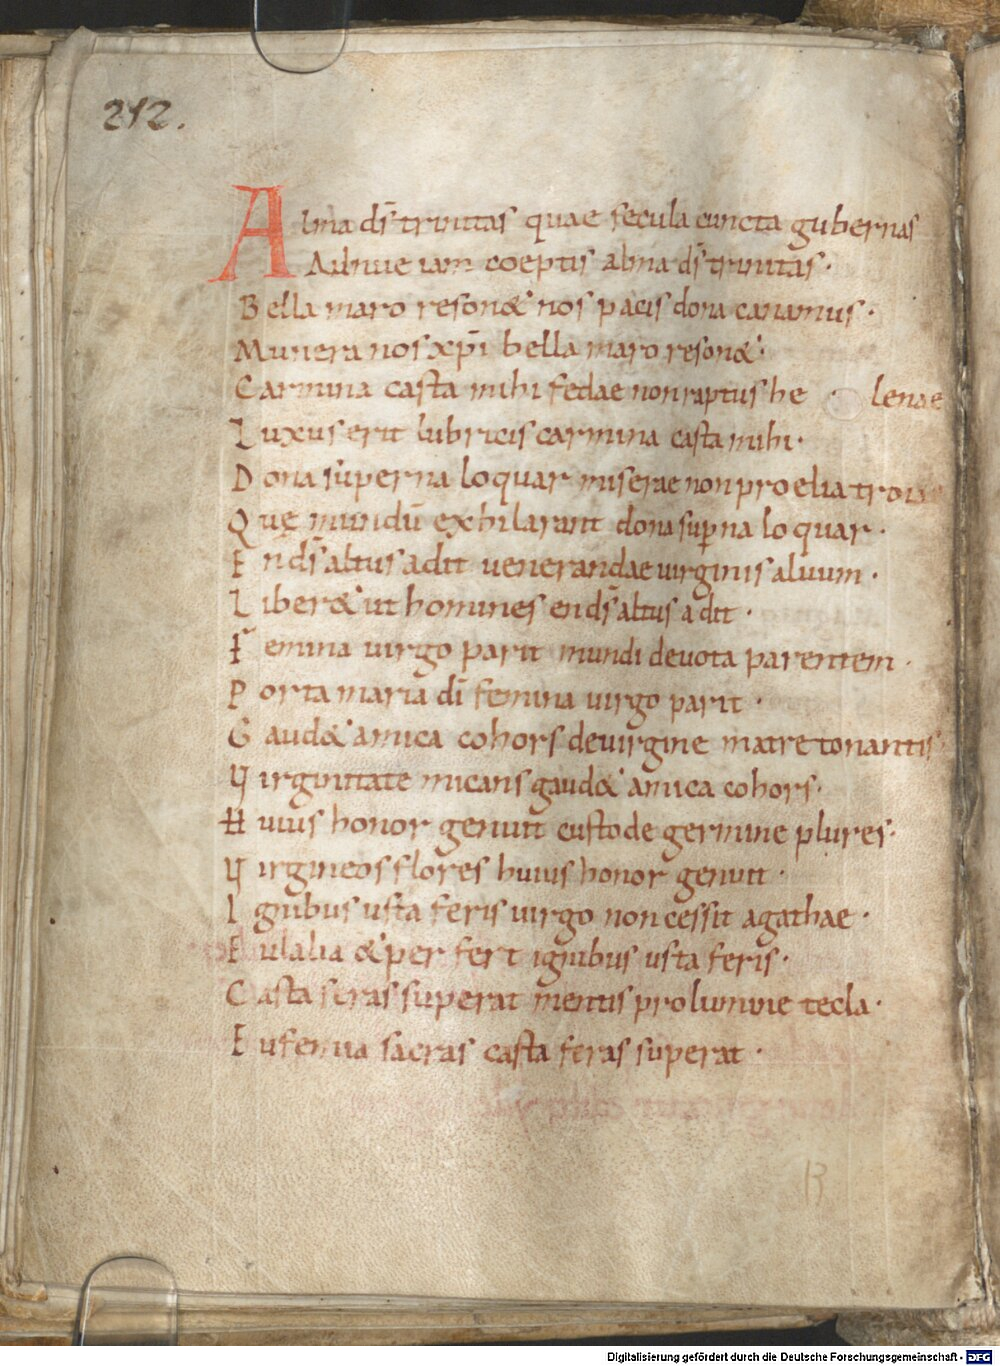 212.
Alma ds̄ trinitas quae secula cuncta gubernas
Adnue iam coeptis alma ds̄ trinitas.
Bella maro reson& nos pacis dona canamus.
Munera nos xp̄i bella maro reson&.
Carmina casta mihi fedae non raptus he lenae
Luxus erit lubricis carmina casta mihi.
Dona superna loquar miserae non proelia troiae
Quę mundū exhilarant dona sup̄na loquar.
En ds̄ altus adit venerandae virginis alvum.
Liber& ut homines en ds̄ altus adit.
Femina virgo parit mundi devota parentem.
Porta maria dī femina virgo parit.
Gaud& amica cohors de virgine matre tonantis
Virginitate micans gaud& amica cohors.
Huius honor genuit custode germine plures.
Virgineos flores huius honor genuit.
Ignibus usta feris virgo non cessit agathae.
Eulalia & per fert ignibus usta feris.
Casta feras superat mentis pro lumine tecla.
Eufemia sacras casta feras superat.
13
Digitalisierung gefördert durch die Deutsche Forschungsgemeinschaft - DFG